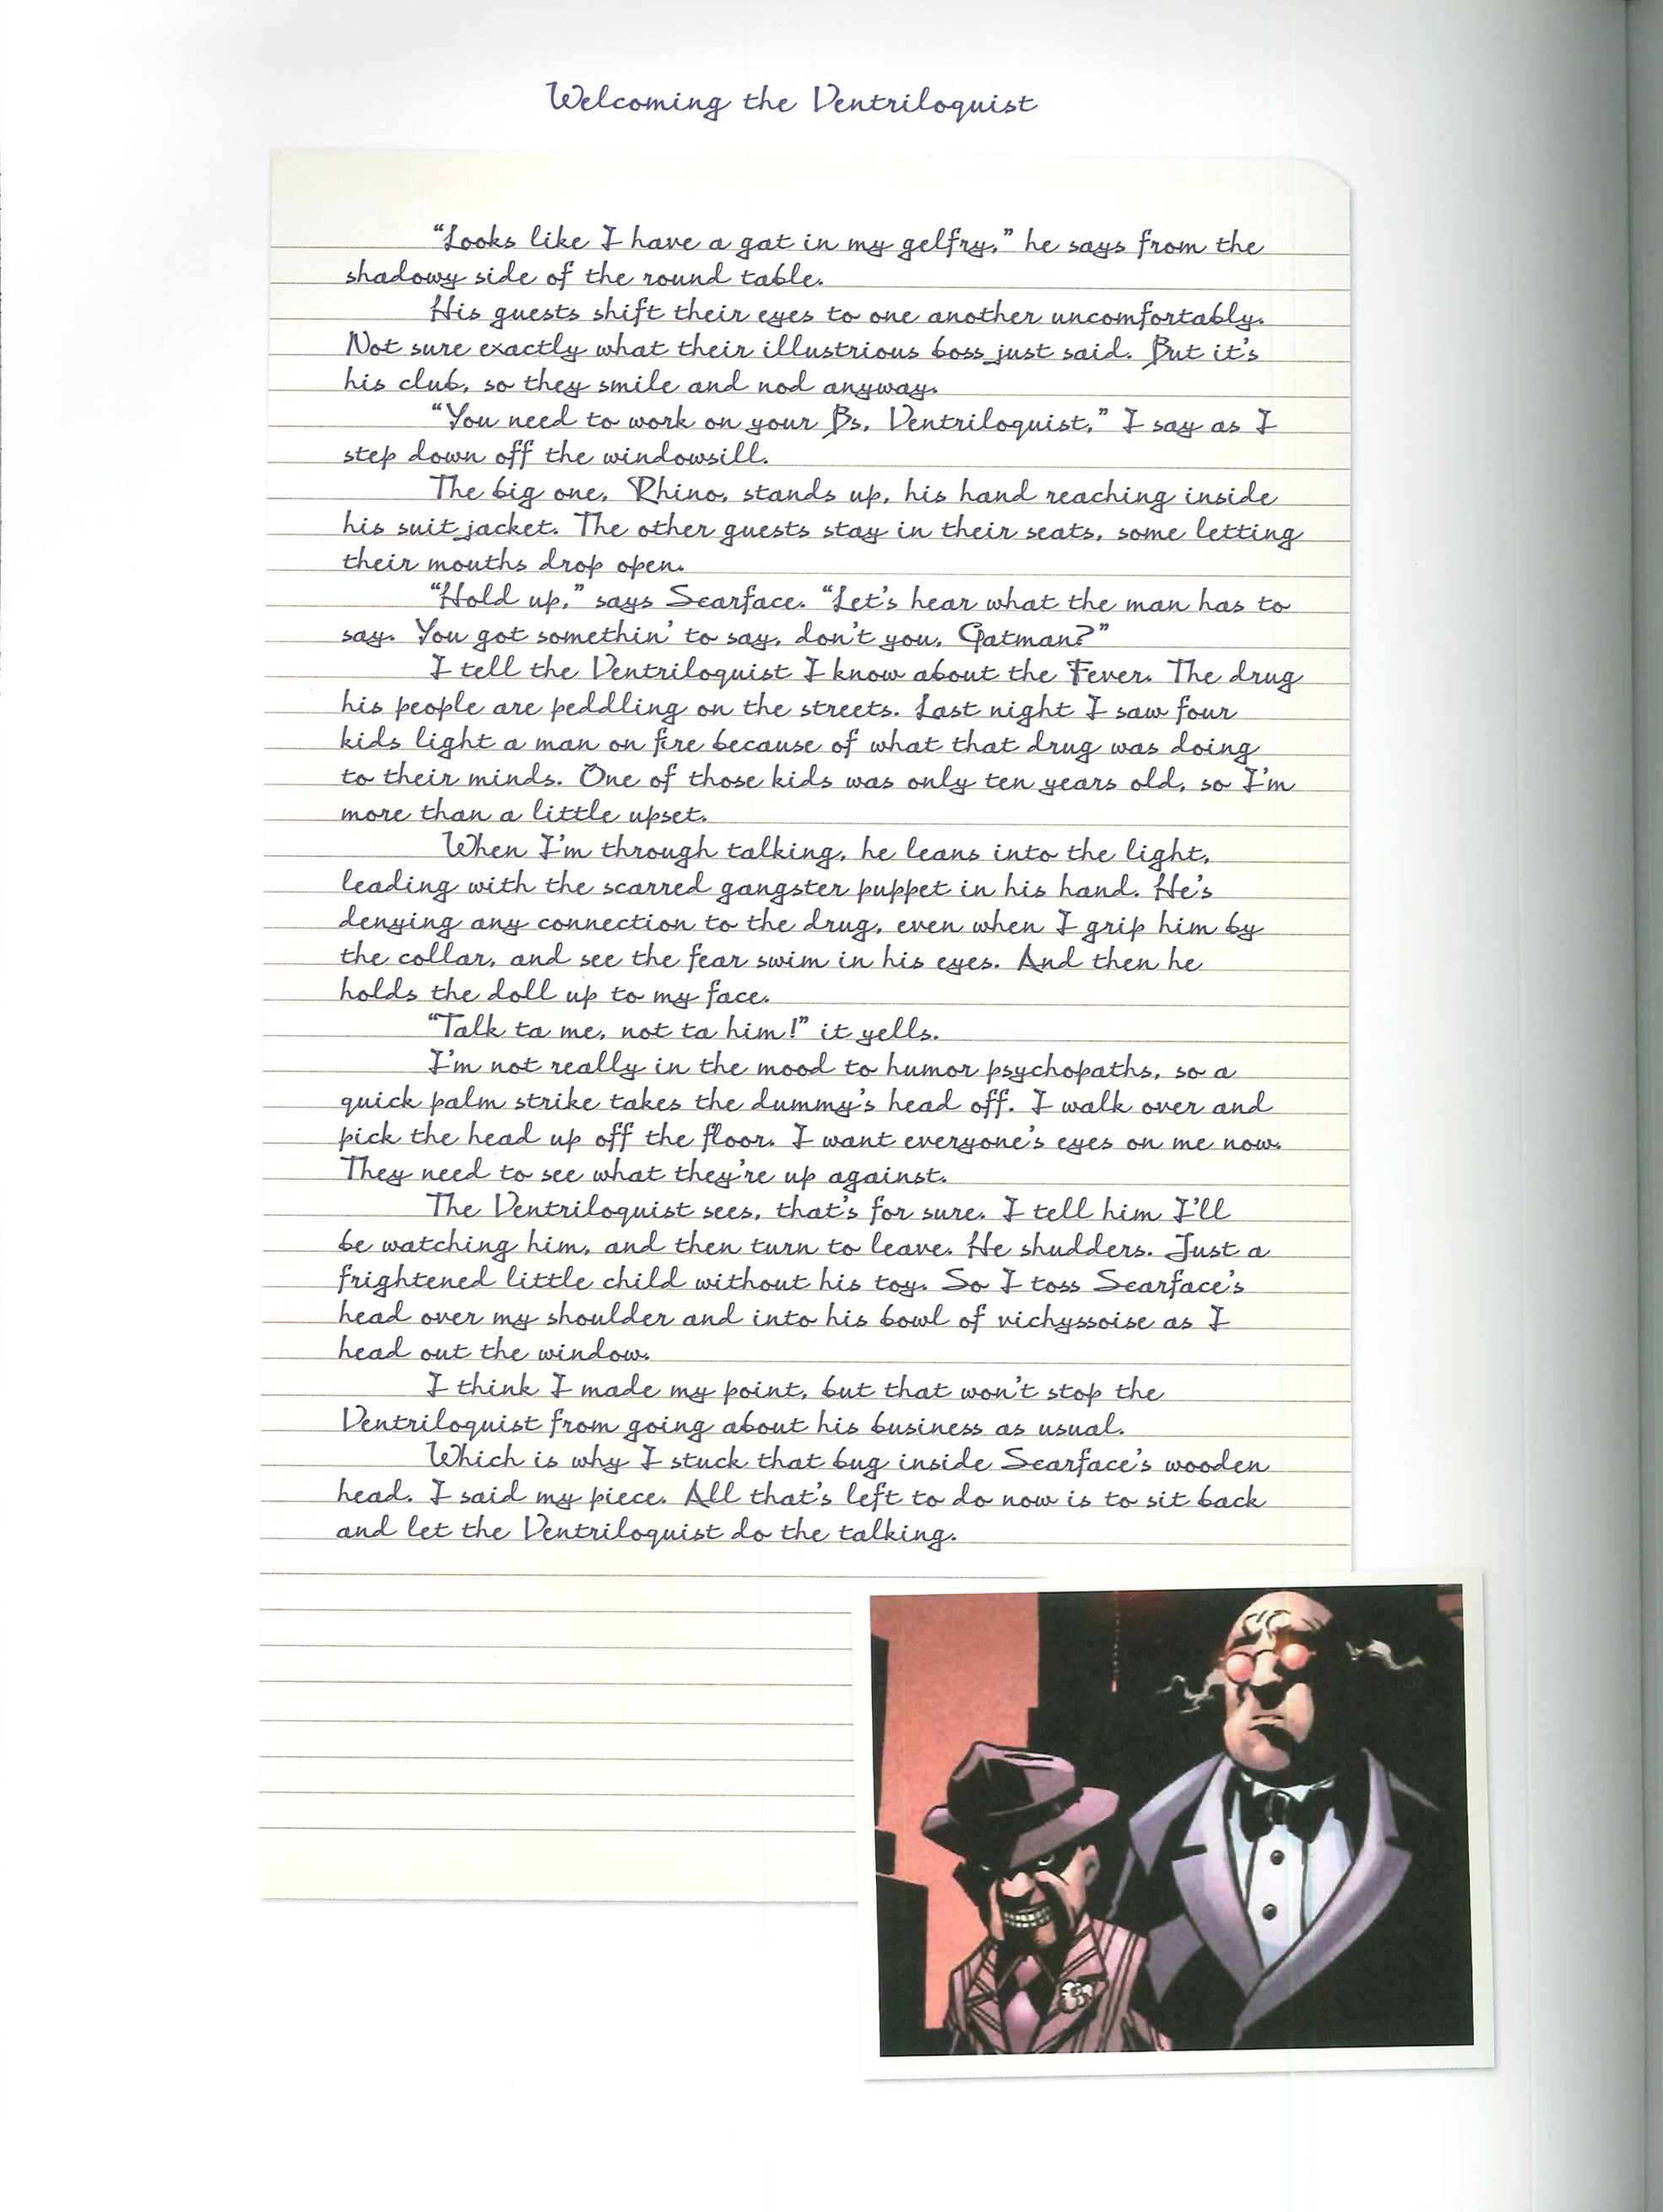 Welcoming the Ventriloquist
“Looks like I have a gat in my gelfry,” he says from the
shadowy side of the round table.
His guests shift their eyes to one another uncomfortably.
Not sure exactly what their illustrious boss just said. But it’s
his club, so they smile and nod anyway.
“You need to work on your Bs, Ventriloquist,” I say as I
step down off the windowsill.
The big one, Rhino, stands up, his hand reaching inside
his suit jacket. The other guests stay in their seats, some letting
their mouths drop open.
“Hold up,” says Scarface. “Let’s hear what the man has to
say. You got somethin’ to say, don’t you, Gatman?”
I tell the Ventriloquist I know about the Fever. The drug
his people are peddling on the streets. Last night I saw four
kids light a man on fire because of what that drug was doing
to their minds. One of those kids was only ten years old, so I’m
more than a little upset.
When I’m through talking, he leans into the light,
leading with the scarred gangster puppet in his hand. He’s
denying any connection to the drug, even when I grip him by
the collar, and see the fear swim in his eyes. And then he
holds the doll up to my face.
“Talk ta me, not ta him!” it yells.
I’m not really in the mood to humor psychopaths, so a
quick palm strike takes the dummy’s head off. I walk over and
pick the head up off the floor. I want everyone’s eyes on me now.
They need to see what they’re up against.
The Ventriloquist sees, that’s for sure. I tell him I’ll
be watching him, and then turn to leave. He shudders. Just a
frightened little child without his toy. So I toss Scarface’s
head over my shoulder and into his bowl of vichyssoise as I
head out the window.
I think I made my point, but that won’t stop the
Ventriloquist from going about his business as usual.
Which is why I stuck that bug inside Scarface’s wooden
head. I said my piece. All that’s left to do now is to sit back
and let the Ventriloquist do the talking.